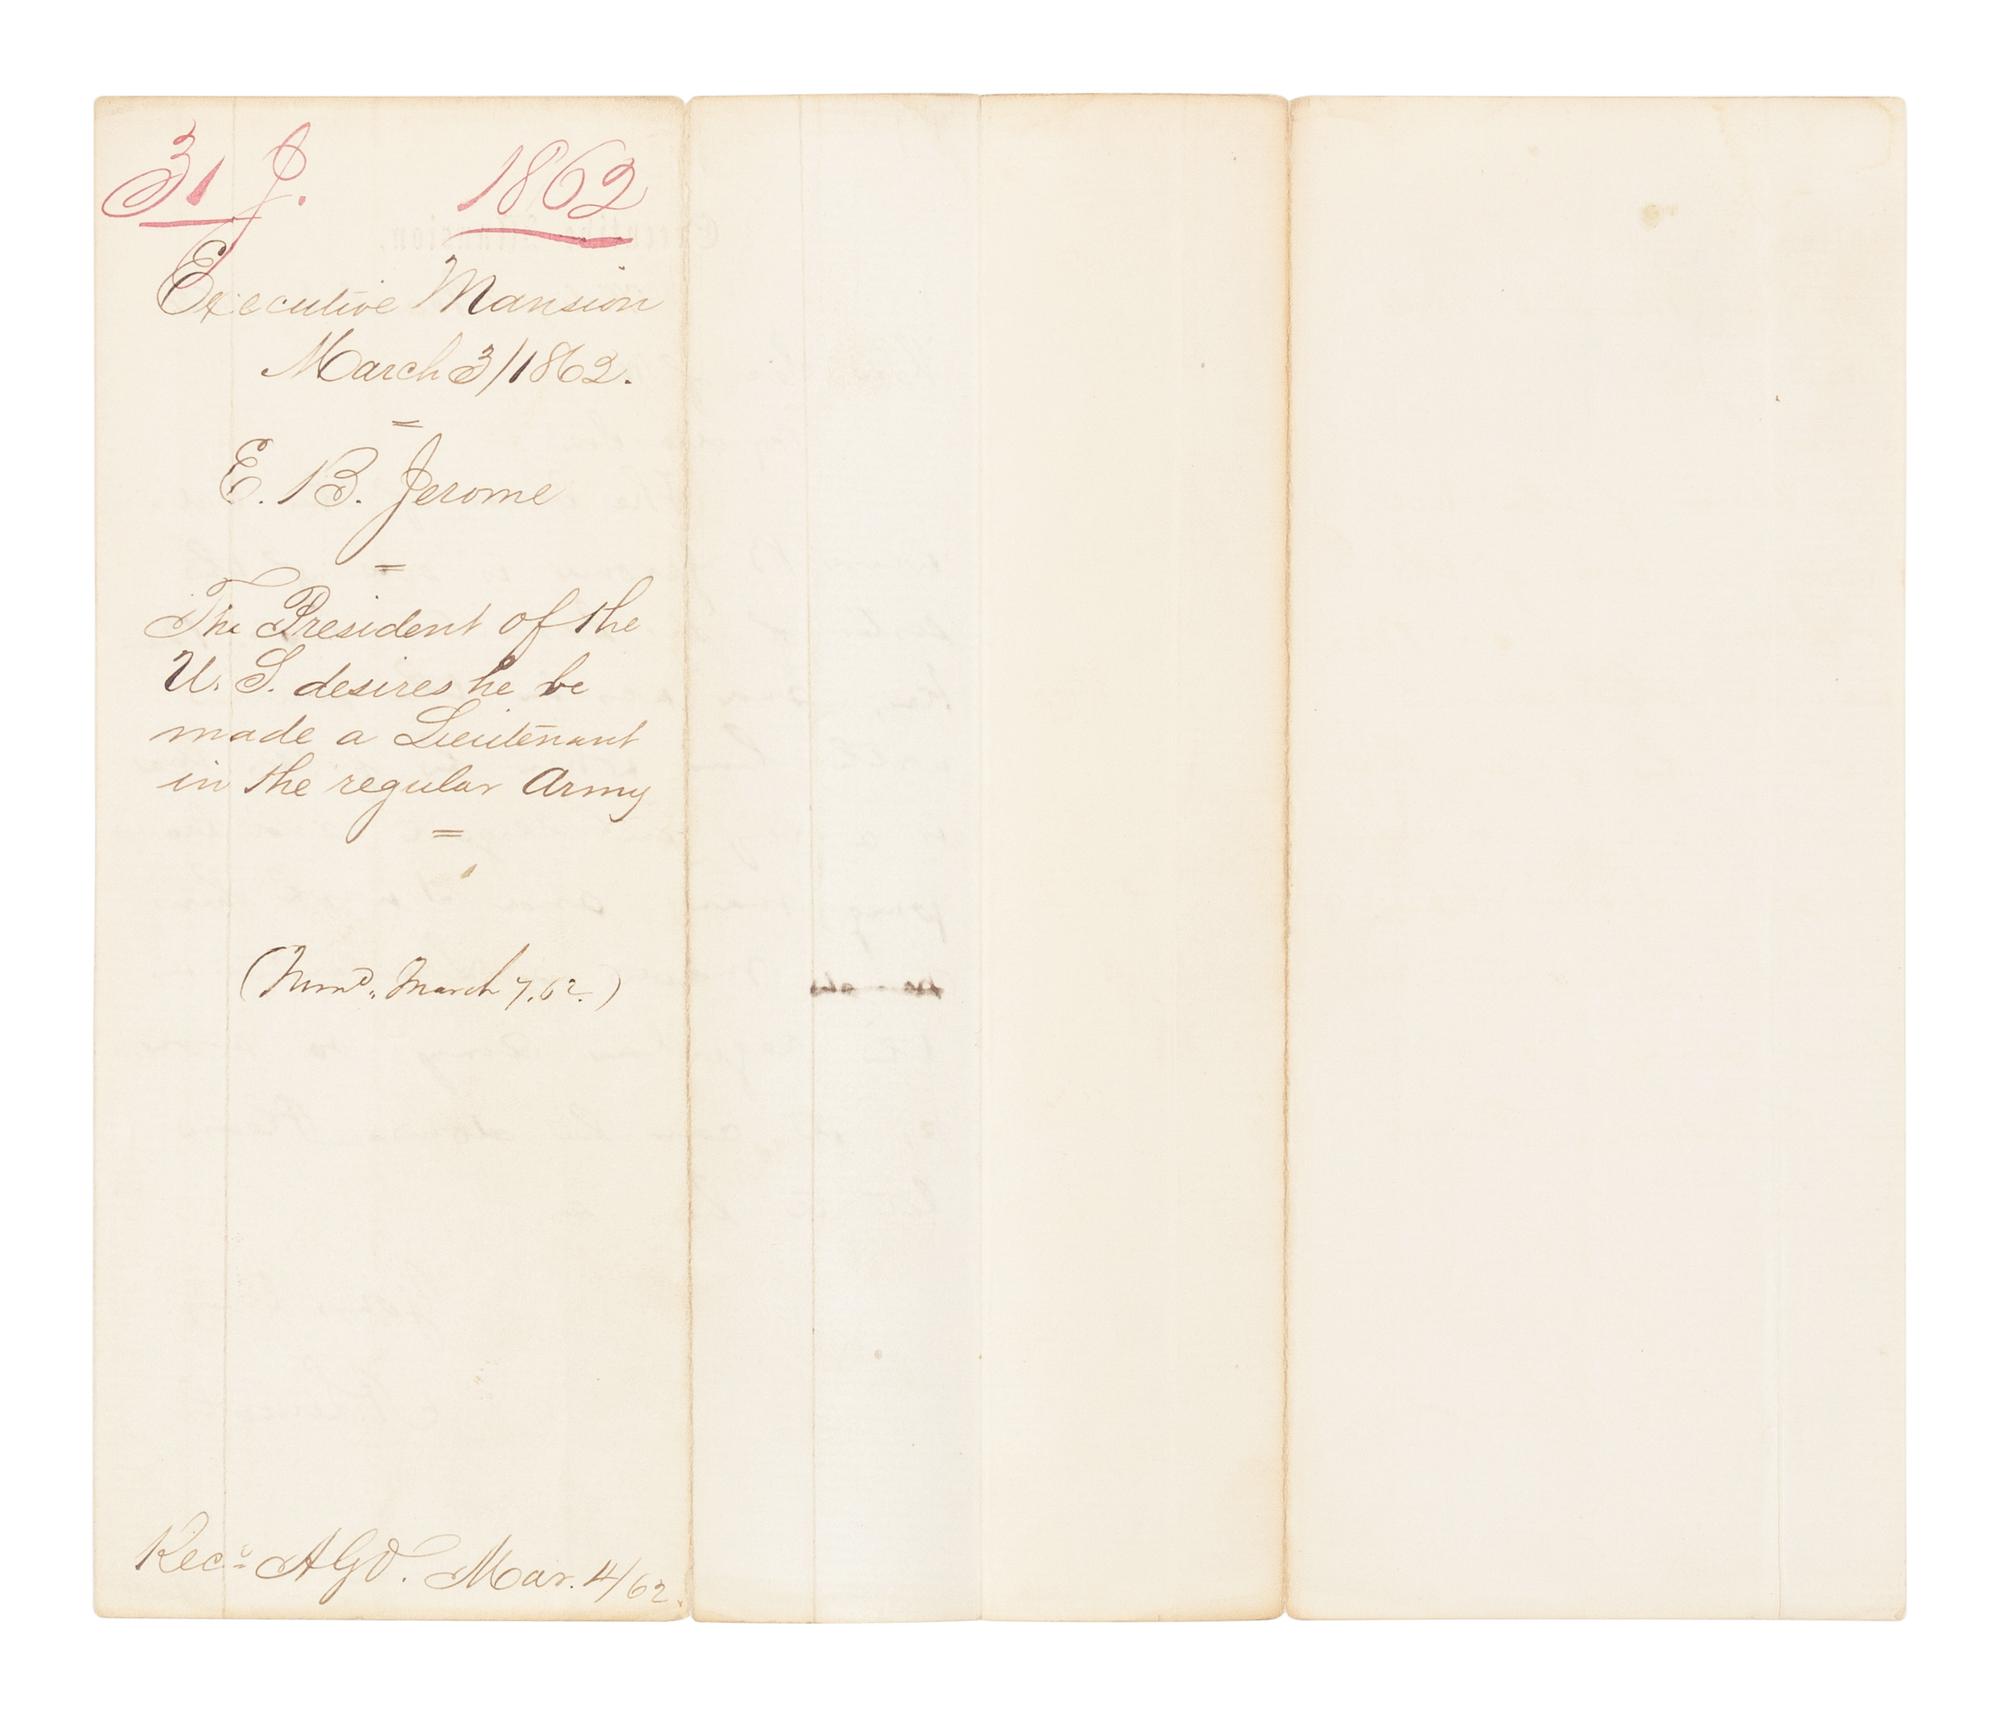 31 J. 1862
Executive Mansion
March 3/1862.
=
E. B. Jerome
=
The President of the
U. S. desires he be
made a Lieutenant
in the regular Army
=
March 7, 62.)
Recd AGO. Mar. 4/62.